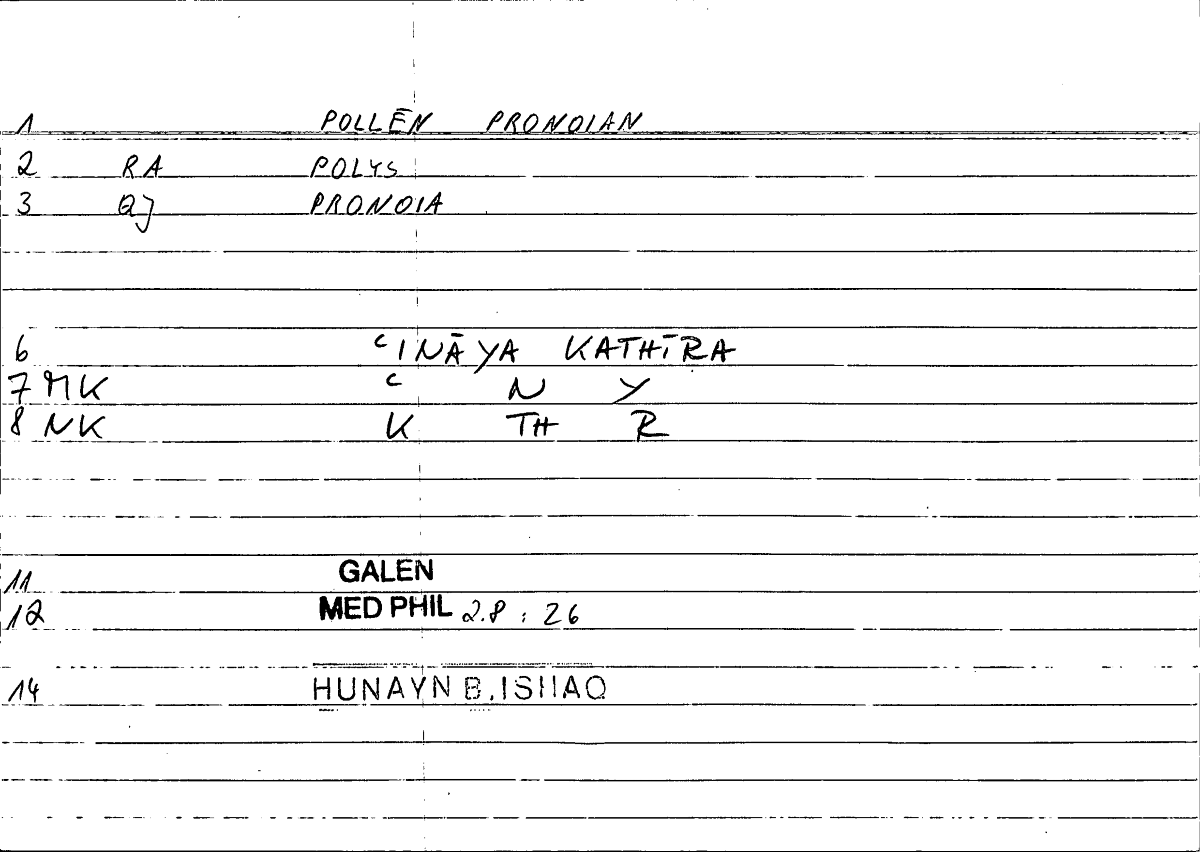 1 POLLĒN PRONOIAN
2 RA POLYS
3 QJ PRONOIA
6 ʿINĀYA KATHĪRA
7 MK ʿ N Y
8 NK K TH R
11 GALEN
12 MED PHIL 2.8 : 26
14 HUNAYN B. ISHAQ